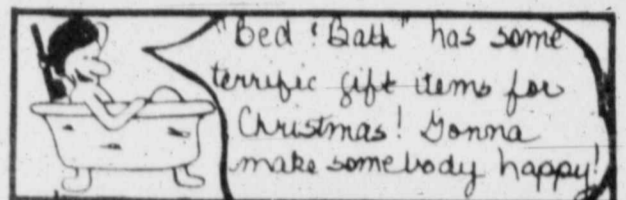 "Bed & Bath" has some
terrific gift items for
Christmas! Gonna
make somebody happy!